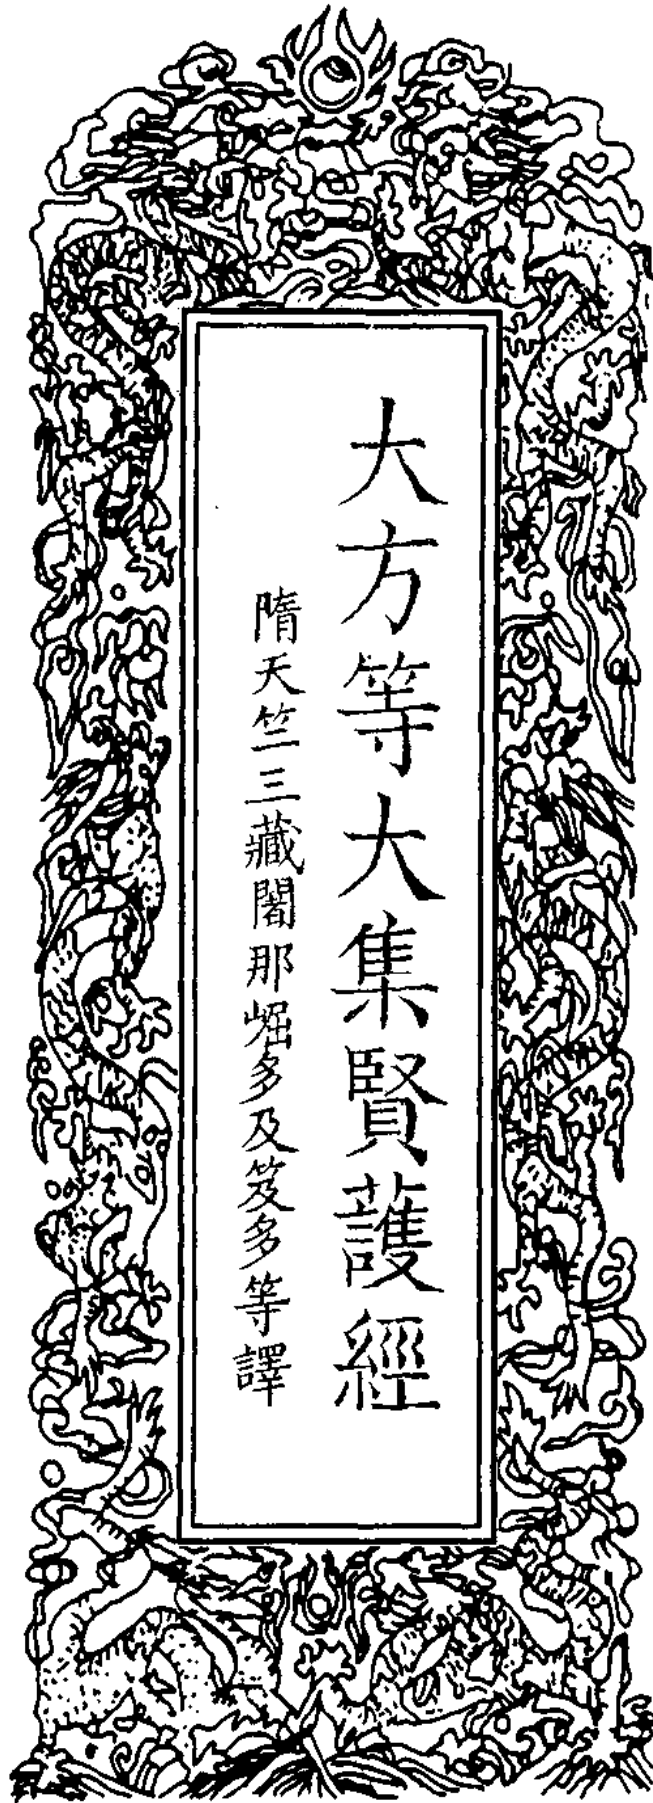 大方等大集賢護經
隋天竺三藏闍那崛多及笈多等譯